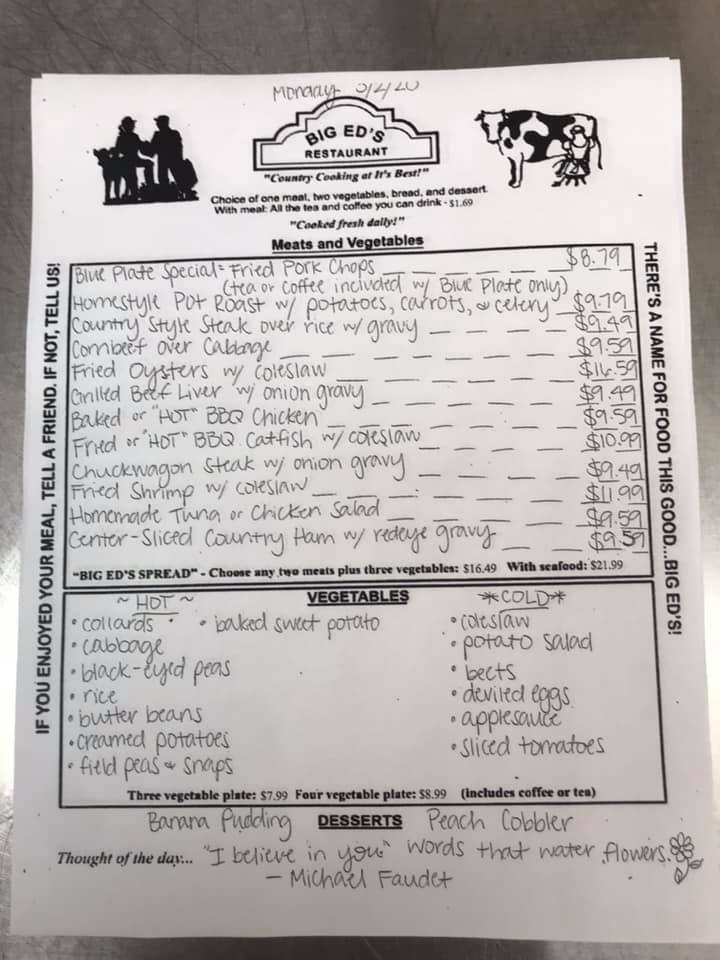 Monday 3/2/20
BIG ED'S
RESTAURANT
"Country Cooking at It's Best!"
Choice of one meat, two vegetables, bread, and dessert.
With meal: All the tea and coffee you can drink - $1.69
"Cooked fresh daily!"
Meats and Vegetables
Blue Plate Special: Fried Pork Chops $8.79
(tea or coffee included w/ Blue Plate only)
Homestyle Pot Roast w/ potatoes, carrots, & celery $9.79
Country Style Steak over rice w/ gravy $9.49
Cornbeef over Cabbage $9.59
Fried Oysters w/ coleslaw $16.59
Grilled Beef Liver w/ onion gravy $9.49
Baked or "HOT" BBQ Chicken $9.59
Fried or "HOT" BBQ Catfish w/ coleslaw $10.99
Chuckwagon Steak w/ onion gravy $9.49
Fried Shrimp w/ coleslaw $11.99
Homemade Tuna or Chicken Salad $9.59
Center-Sliced Country Ham w/ redeye gravy $9.59
"BIG ED'S SPREAD" - Choose any two meats plus three vegetables: $16.49 With seafood: $21.99
IF YOU ENJOYED YOUR MEAL, TELL A FRIEND. IF NOT, TELL US!
THERE'S A NAME FOR FOOD THIS GOOD...BIG ED'S!
VEGETABLES
~ HOT ~
• collards
• cabbage
• black-eyed peas
• rice
• butter beans
• creamed potatoes
• field peas & snaps
• baked sweet potato
*COLD*
• coleslaw
• potato salad
• beets
• deviled eggs
• applesauce
• sliced tomatoes
Three vegetable plate: $7.99 Four vegetable plate: $8.99 (includes coffee or tea)
Banana Pudding DESSERTS Peach Cobbler
Thought of the day... "I believe in you." Words that water flowers.
- Michael Faudet